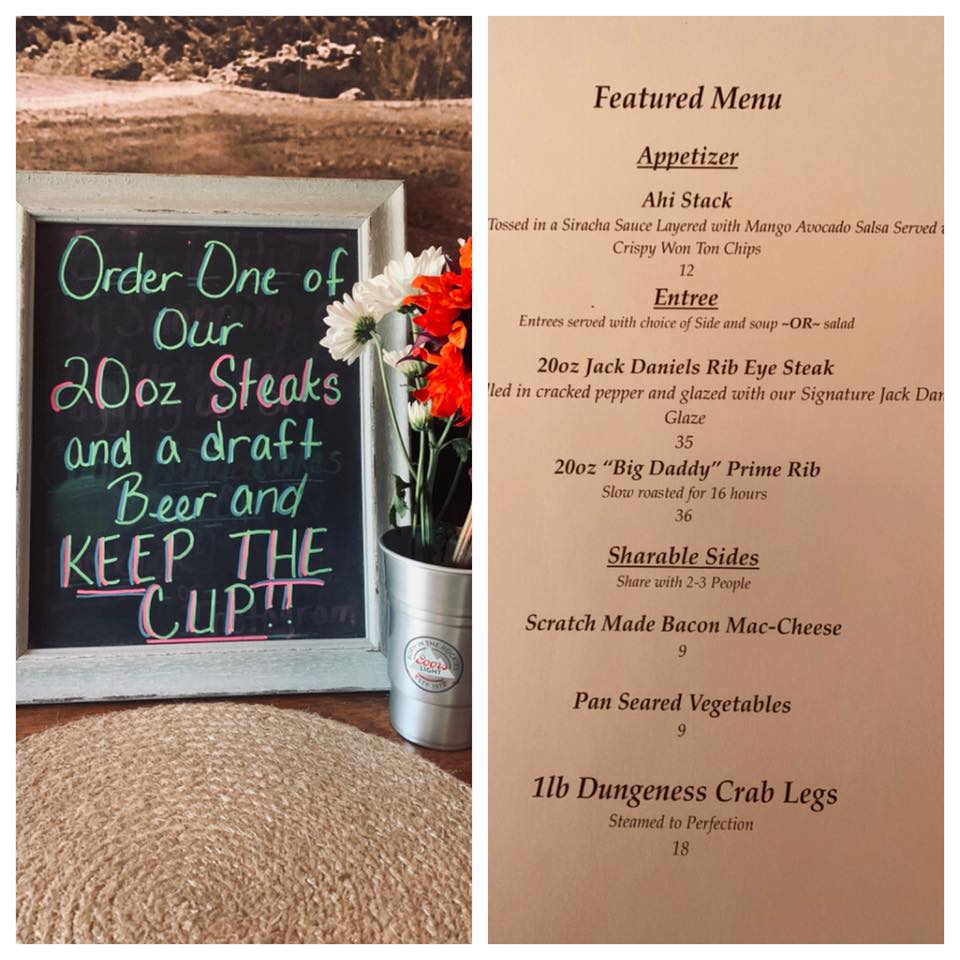 Order One of
Our
20oz Steaks
and a draft
Beer and
KEEP THE
CUP!!
BORN IN THE ROCKIES
Coors
LIGHT
Featured Menu
Appetizer
Ahi Stack
Tossed in a Siracha Sauce Layered with Mango Avocado Salsa Served
Crispy Won Ton Chips
12
Entree
Entrees served with choice of Side and soup ~OR~ salad
20oz Jack Daniels Rib Eye Steak
lled in cracked pepper and glazed with our Signature Jack Dan
Glaze
35
20oz “Big Daddy” Prime Rib
Slow roasted for 16 hours
36
Sharable Sides
Share with 2-3 People
Scratch Made Bacon Mac-Cheese
9
Pan Seared Vegetables
9
1lb Dungeness Crab Legs
Steamed to Perfection
18